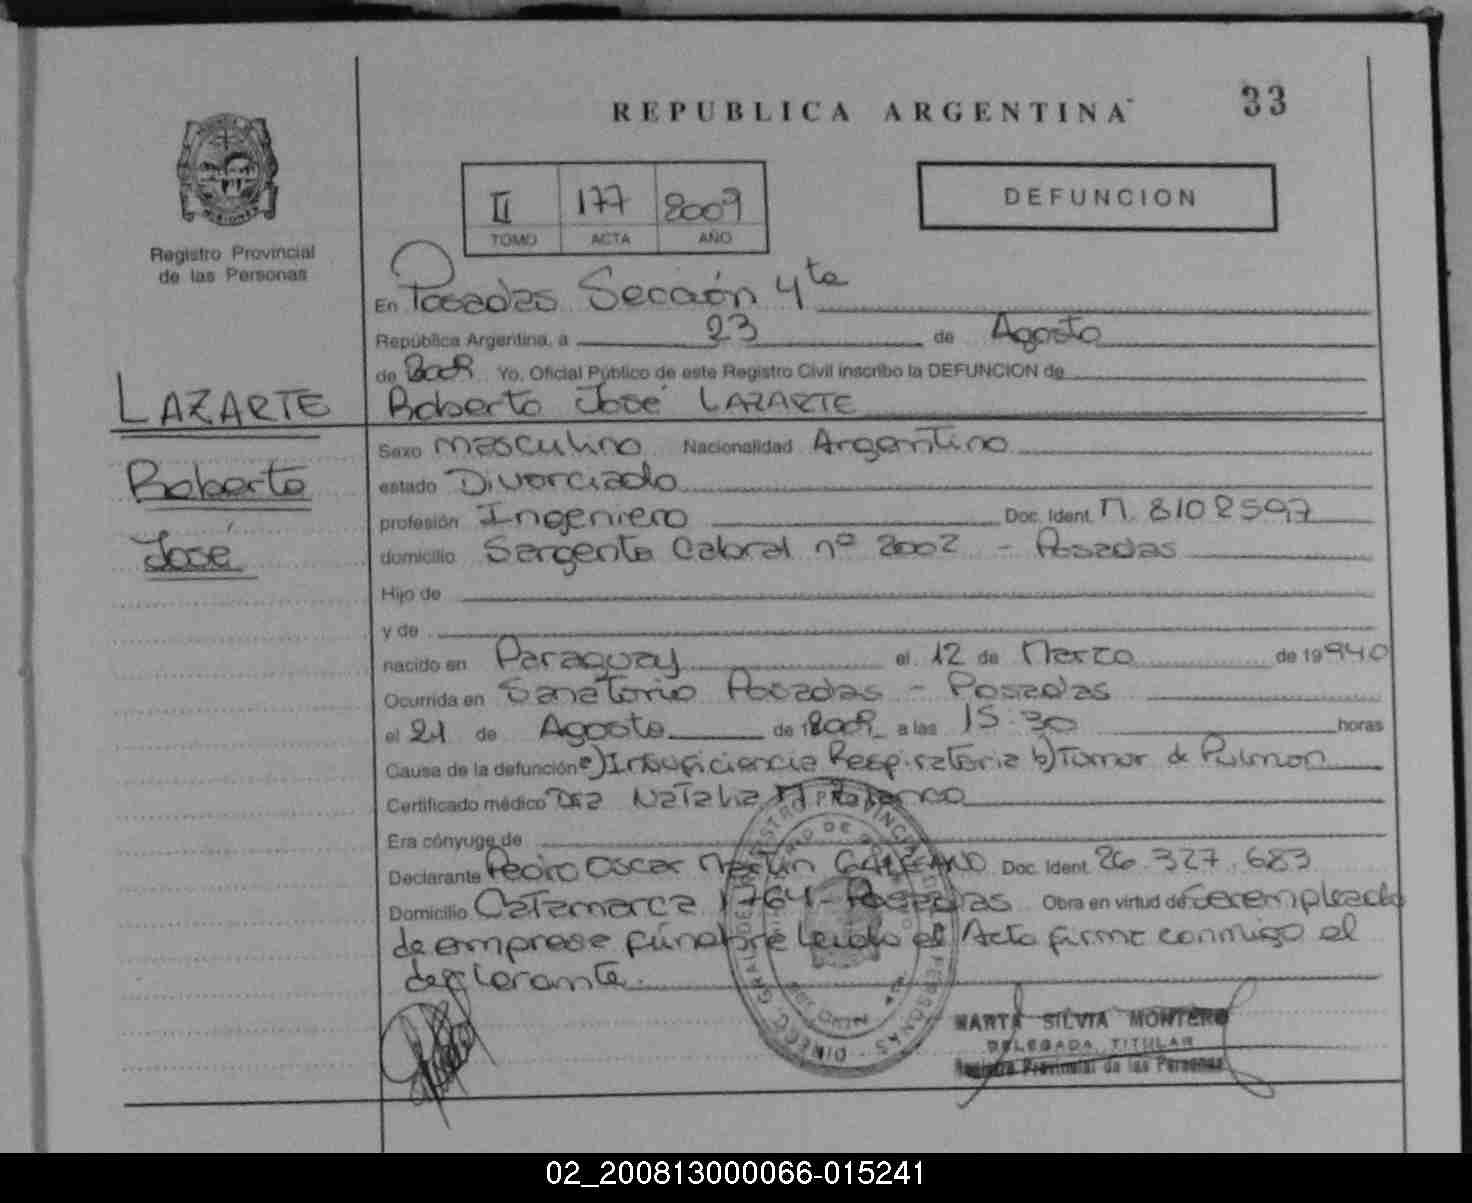 REPUBLICA ARGENTINA
33
II 177 2009
TOMO ACTA AÑO
DEFUNCION
Registro Provincial
de las Personas
MISIONES
En Posadas Sección 4ta
República Argentina, a 23 de Agosto
de 2009 Yo, Oficial Público de este Registro Civil inscribo la DEFUNCION de
LAZARTE
Roberto José LAZARTE
Roberto
José
Sexo masculino Nacionalidad Argentino
estado Divorciado
profesión Ingeniero Doc. Ident. M. 8102597
domicilio Sargento Cabral nº 2002 - Posadas
Hijo de
y de
nacido en Paraguay el 12 de Marzo de 19940
Ocurrida en Sanatorio Posadas - Posadas
el 21 de Agosto de 2009 a las 15:30 horas
Causa de la defunción a) Insuficiencia Respiratoria b) Tumor de Pulmon
Certificado médico Dra Natalia
Era cónyuge de
Declarante Pedro Oscar Martin GALEANO Doc. Ident. 26.327.683
Domicilio Catamarca 1764 - Posadas Obra en virtud de ser empleado
de empresa fúnebre leido el Acta firma conmigo el
declarante.
MARTA SILVIA MONTERO
DELEGADA TITULAR
Registro Provincial de las Personas
02_200813000066-015241